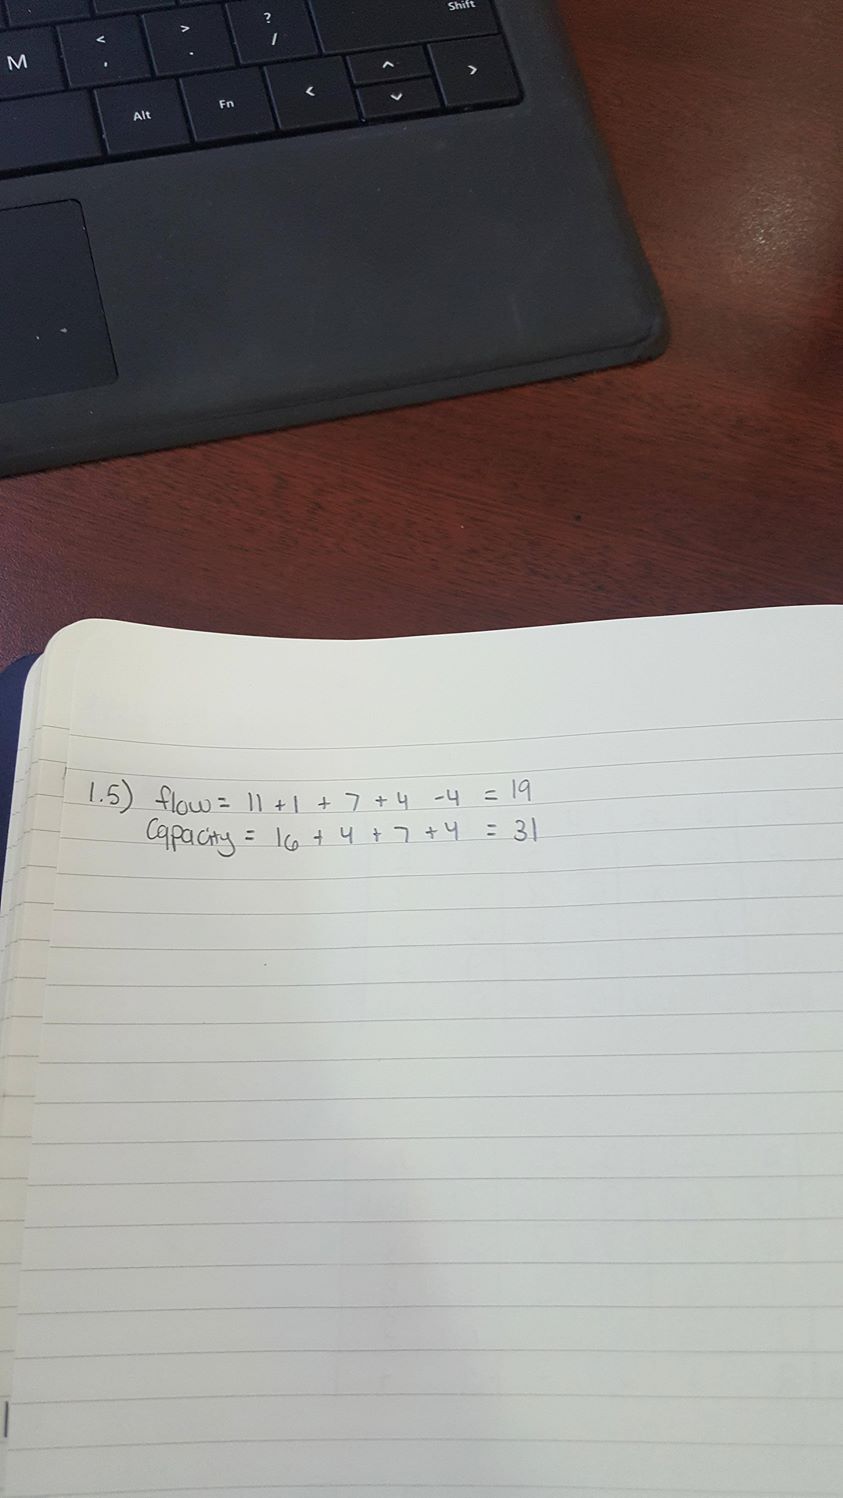 Shift
M < , > . ? /
Alt Fn < ^ v >
1.5) flow = 11 + 1 + 7 + 4 - 4 = 19
Capacity = 16 + 4 + 7 + 4 = 31